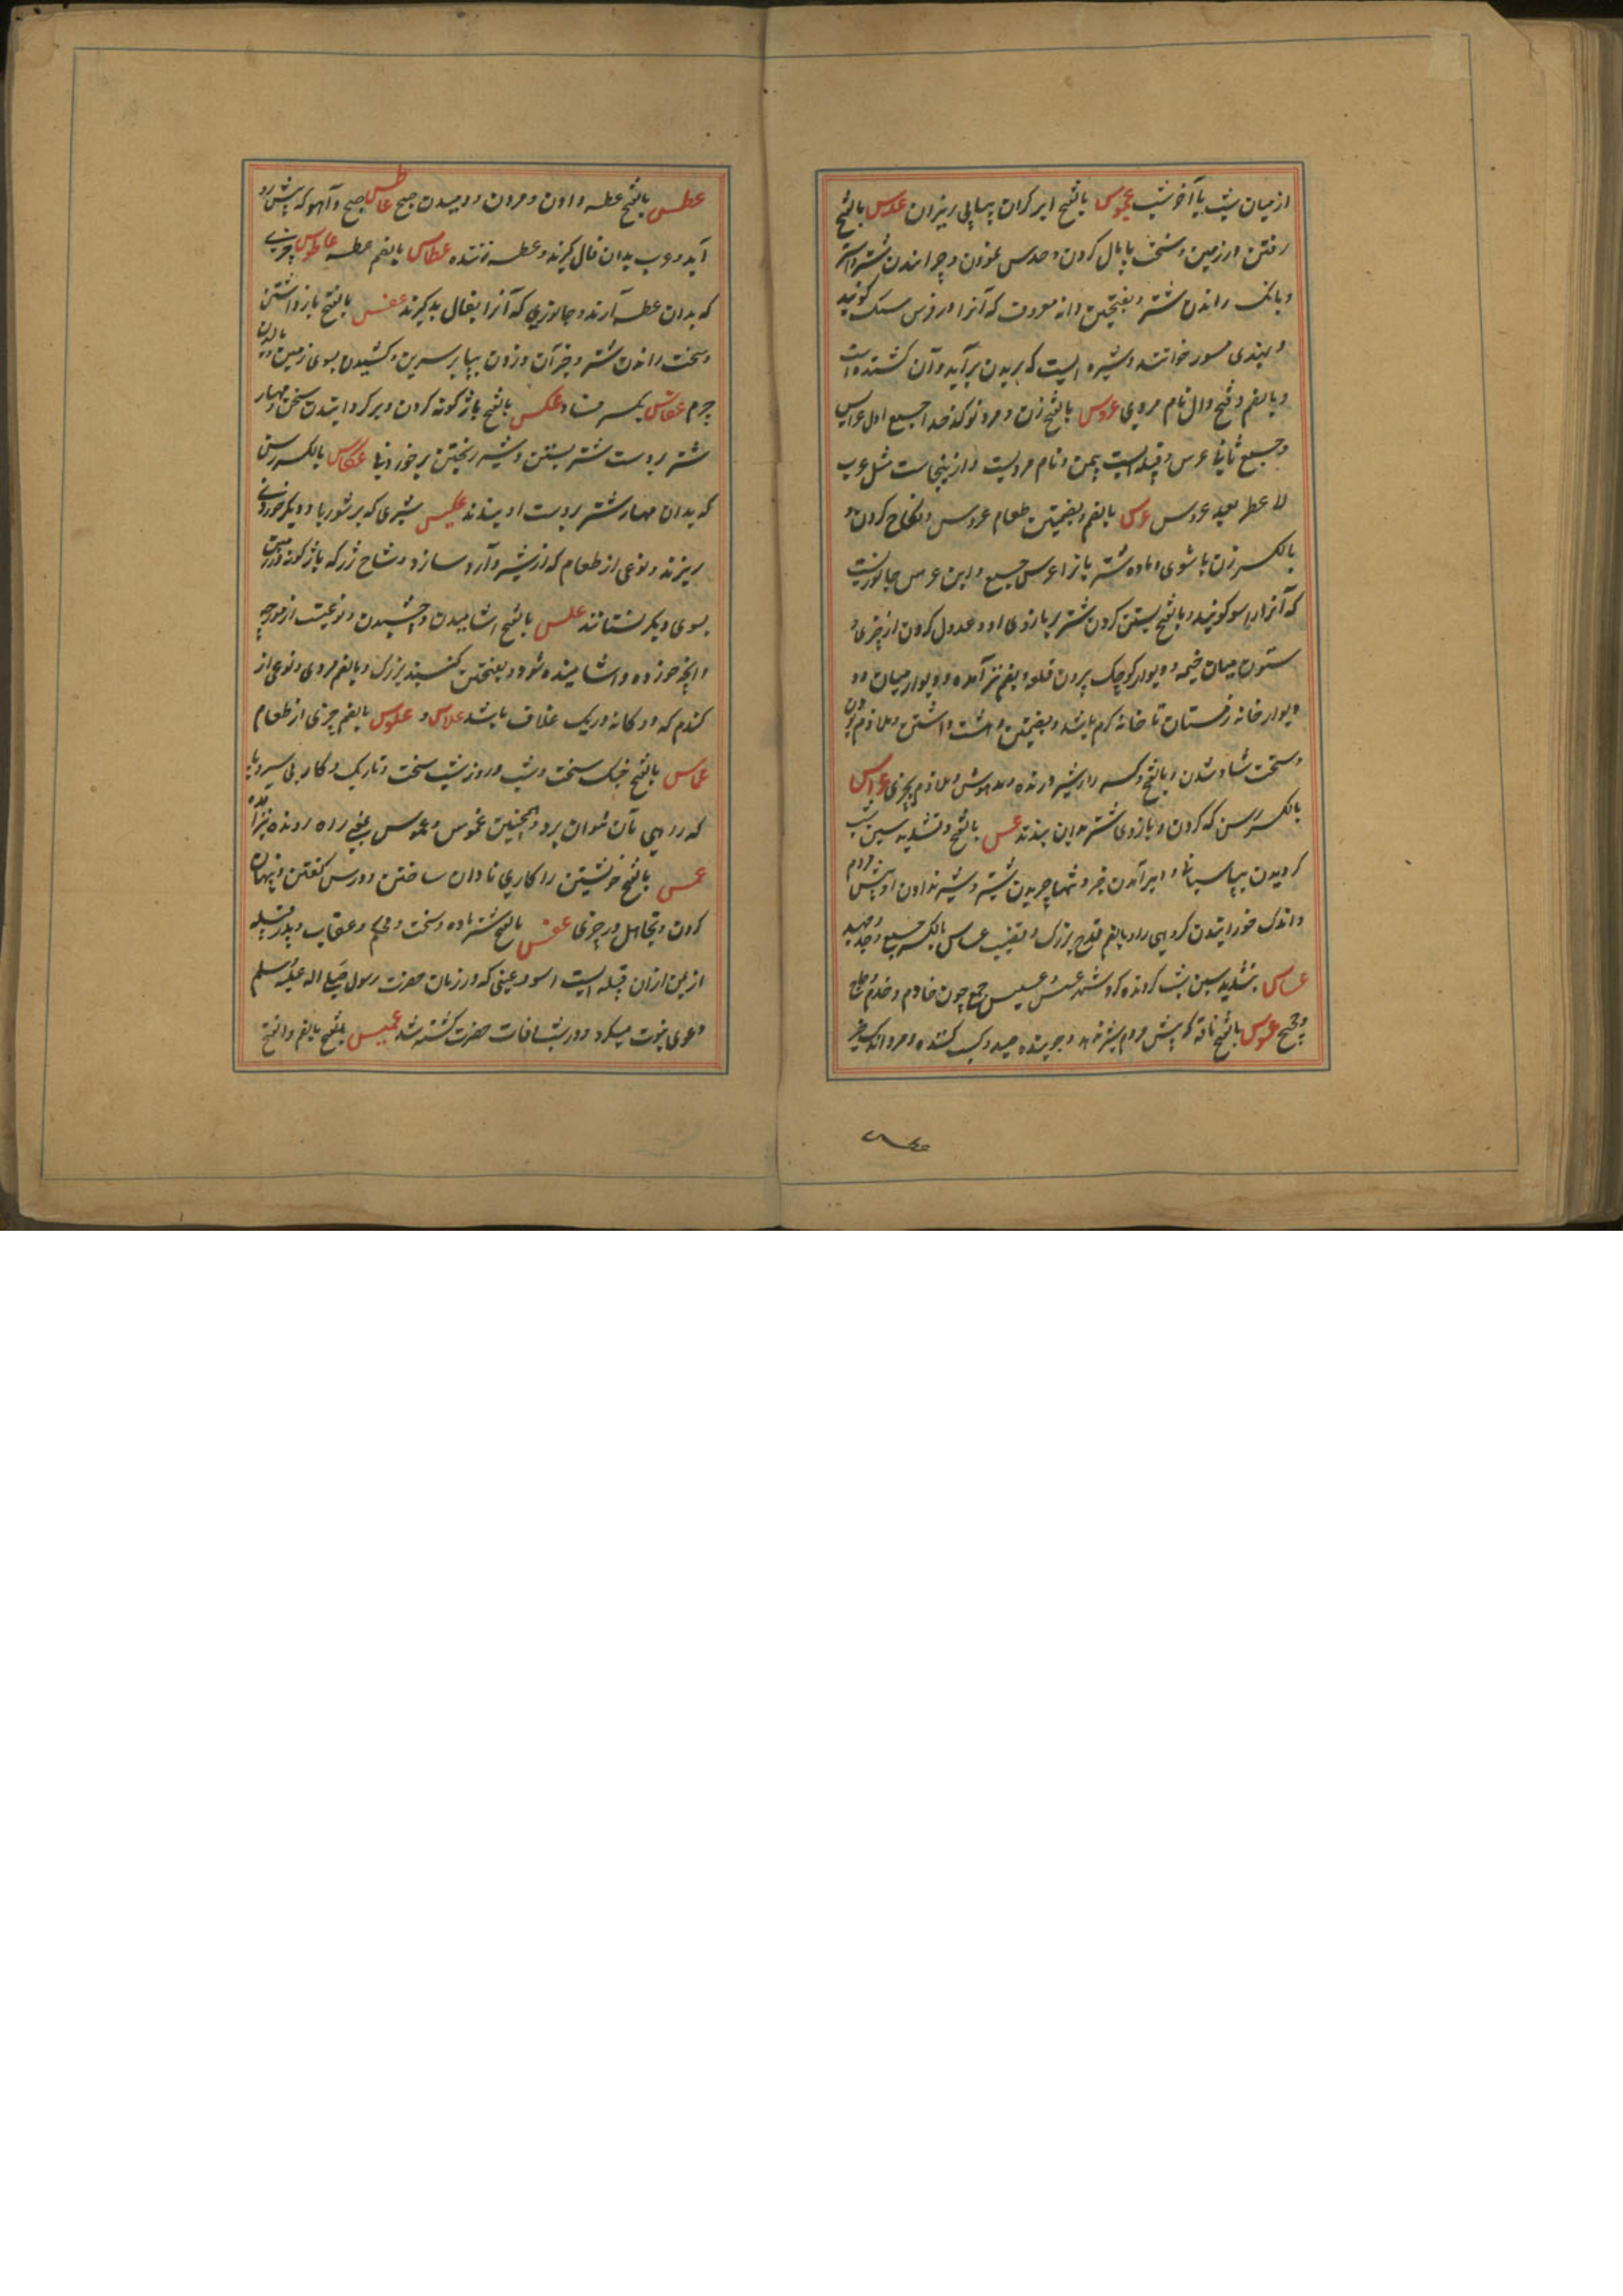 از میان شب یا آخر شب عجوس بالفتح ابر گران پیاپی ریزان عدس بالفتح
رفتن در زمین و سخت پایمال کردن و حدس نمودن و چرانیدن شتر و استر
و بانک راندن شتر و بفتحتین دانه معروف که آنرا در فرس سنک گویند
و بهندی مسور خوانند و بثیره ایست که بر بدن برآید و آن کشنده است
و بالضم و فتح دال نام مردی عروس بالفتح زن و مرد نو کدخدا جمع اول عرایس
و جمع ثانی عرس و قبیله ایست بیمن و نام مردیست و ازینجاست مثل عرب
لا عطر بعد عروس عرس بالضم و بضمتین طعام عروس و نکاح کردن و
بالکسر زن با شوی و ماده شتر با نر اعراس جمع و ابن عرس جانوریست
که آنرا راسو گویند و بالفتح بستن گردن شتر ببازوی او و عدول کردن از چیزی و
ستون میان خیمه و دیوار کوچک بیرون قلعه و بضم نیز آمده و دیوار میان دو
دیوار خانه زمستان تا خانه گرم باشد و بفتحتین دهشت داشتن و ملازم بودن
و سخت شاد شدن و بالفتح و کسر را شیر درنده و مدهوش و ملازم بچیزی عراس
بالکسر رسن که گردن و بازوی شتر بدان بندند عس بالفتح و تشدید سین بشب
گردیدن بپاسبانی و دیر آمدن خبر و تنها چریدن شتر و شیر ندادن او پیش مردم
و اندک خورانیدن گروهی را و بالضم قدح بزرگ و بقضیب عساس بالکسر جمع و جد و جهد
عساس بتشدید سین بشب گردنده گرد شهر عسس عسیس جمع چون خادم و خدم و حاج
و حجیج عسوس بالفتح ناقه که پیش مردم شیر ندهد و جوینده صید و کسب کننده و مرد اندک خیر
عطس بالفتح عطسه دادن و مردن و دمیدن صبح عاطس صبح و آهو که پیش رو
آید و عرب بدان فال گیرند و عطسه زننده عطاس بالضم عطسه عاطوس چیزی
که بدان عطسه آرند و جانوری که آنرا بفال بد گیرند عفس بالفتح بازداشتن
و سخت راندن شتر و جز آن و زدن بپا بر سرین و کشیدن بسوی زمین و مالیدن
چرم عفاس بکسر فساد عکس بالفتح باژگونه کردن و برگردانیدن سخن و مهار
شتر بر دست شتر بستن و شیر ریختن بر خوردنی عکاس بالکسر رسن
که بدان مهار شتر بر دست او بندند عکیس شیری که بر شوربا و دیگر خوردنی
ریزند و نوعی از طعام که از شیر و آرد سازند و شاخ رز که باژگونه در زمین
بسوی دیگر نشانند علس بالفتح آشامیدن و چشیدن و نوعیست از مورچه
و آنچه خورده و آشامیده شود و بفتحتین کنه بزرگ و بالضم مردی و نوعی از
گندم که دوگانه در یک غلاف باشد علاس و علوس بالضم چیزی از طعام
عماس بالفتح جنگ سخت و شب و روز شب سخت و تاریک و کار بی سر و پا
که رو پی بآن نتوان برد و همچنین عموس و عموس بمعنی راه رونده نیز آمده
عمس بالفتح خویشتن را کاری نادان ساختن و درس گفتن و پنهان
کردن و تجاهل در چیزی عنس بالفتح شتر ماده و سخت و محکم و عقاب و پدر قبیله
از یمن ازان قبیله ایست اسود عنسی که در زمان حضرت رسول صلی الله علیه وسلم
دعوی نبوت میکرد و در شب وفات حضرت کشته شد عمیس بفتح بالضم و الفتح